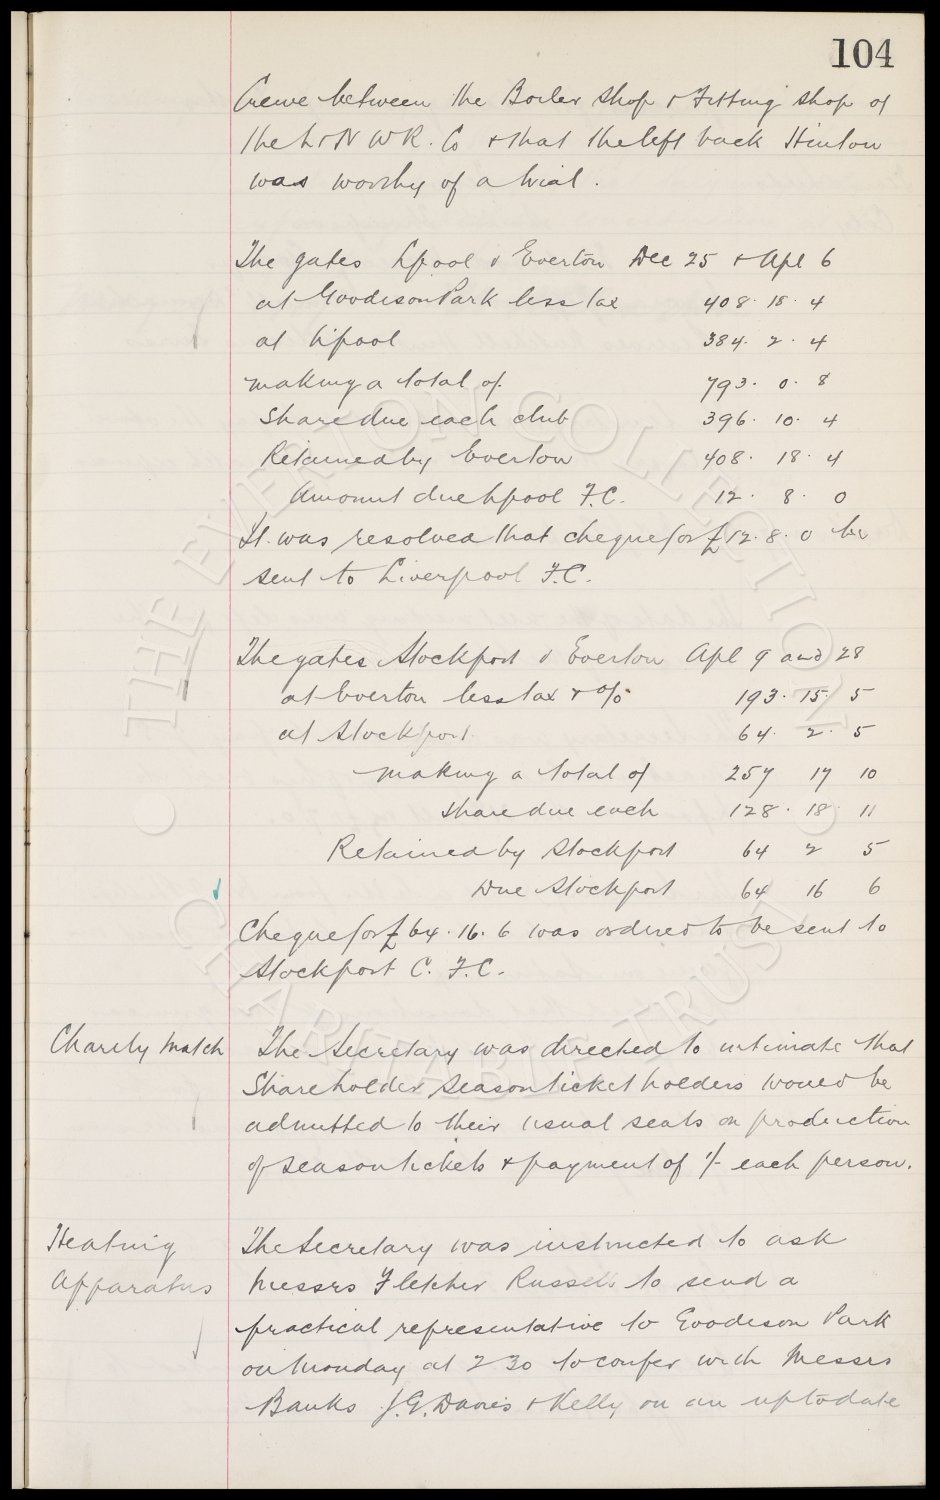 104
Crewe between the Boiler Shop & Fitting Shop of
the L & N W R. Co & that the left back Hinton
was worthy of a trial.
The gates Lpool v Everton Dec 25 & Apl 6
at Goodison Park less tax 408. 18. 4
at L'pool 384. 2. 4
making a total of. 793. 0. 8
Share due each club 396. 10. 4
Retained by Everton 408. 18. 4
Amount due Lpool F.C. 12. 8. 0
It was resolved that cheque for £12. 8. 0 be
sent to Liverpool F.C.
The gates Stockport v Everton Apl 9 and 28
at Everton less tax & % 193. 15. 5
at Stockport 64. 2. 5
making a total of 257 17 10
Share due each 128. 18. 11
Retained by Stockport 64 2 5
Due Stockport 64 16 6
Cheque for £64. 16. 6 was ordered to be sent to
Stockport C. F.C.
Charity Match The Secretary was directed to intimate that
Shareholder season ticket holders would be
admitted to their usual seats on production
of season tickets & payment of 1/- each person.
Heating The Secretary was instructed to ask
Apparatus Messrs Fletcher Russell to send a
practical representative to Goodison Park
on Monday at 2 30 to confer with Messrs
Banks J.G. Davies & Kelly on an up to date
THE EVERTON COLLECTION
CHARITABLE TRUST